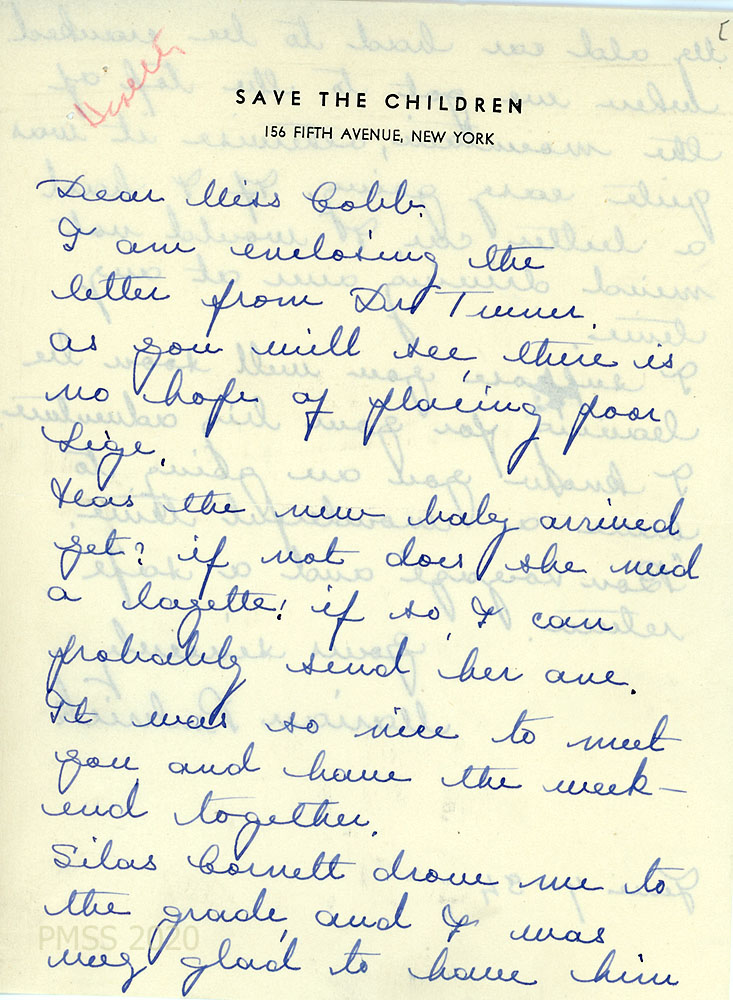 SAVE THE CHILDREN
156 FIFTH AVENUE, NEW YORK
Dear Miss Cobb.
I am enclosing the
letter from Dr Turner.
as you will see, there is
no hope of placing poor
Lige.
Has the new baby arrived
yet? if not does she need
a layette! if so, I can
probably send her one.
It was so nice to meet
you and have the week-
end together.
Silas Cornett drove me to
the grade, and I was
very glad to have him
PMSS 2020